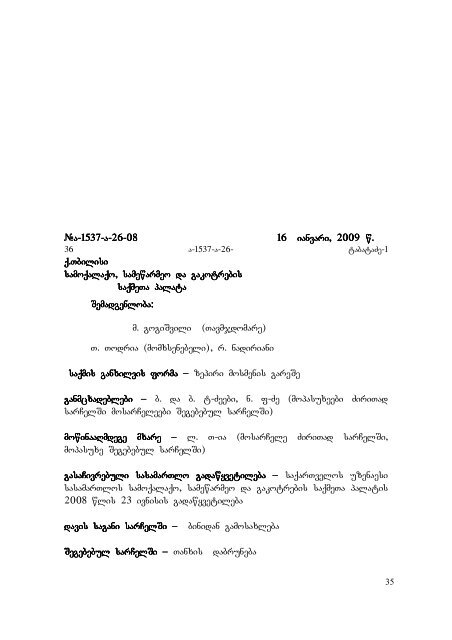 №ა-1537-ა-26-08 16 იანვარი, 2009 წ.
36 ა-1537-ა-26- ტაბატაძე-1
ქ.თბილისი
სამოქალაქო, სამეწარმეო და გაკოტრების
საქმეთა პალატა
შემადგენლობა:
მ. გოგიშვილი (თავმჯდომარე)
თ. თოდრია (მომხსენებელი), რ. ნადირიანი
საქმის განხილვის ფორმა – ზეპირი მოსმენის გარეშე
განმცხადებლები – ბ. და ბ. ტ-ძეები, ნ. ფ-ძე (მოპასუხეები ძირითად
სარჩელში მოსარჩელეები შეგებებულ სარჩელში)
მოწინააღმდეგე მხარე – ლ. თ-ია (მოსარჩელე ძირითად სარჩელში,
მოპასუხე შეგებებულ სარჩელში)
გასაჩივრებული სასამართლო გადაწყვეტილება – საქართველოს უზენაესი
სასამართლოს სამოქალაქო, სამეწარმეო და გაკოტრების საქმეთა პალატის
2008 წლის 23 ივნისის გადაწყვეტილება
დავის საგანი სარჩელში – ბინიდან გამოსახლება
შეგებებულ სარჩელში – თანხის დაბრუნება
35